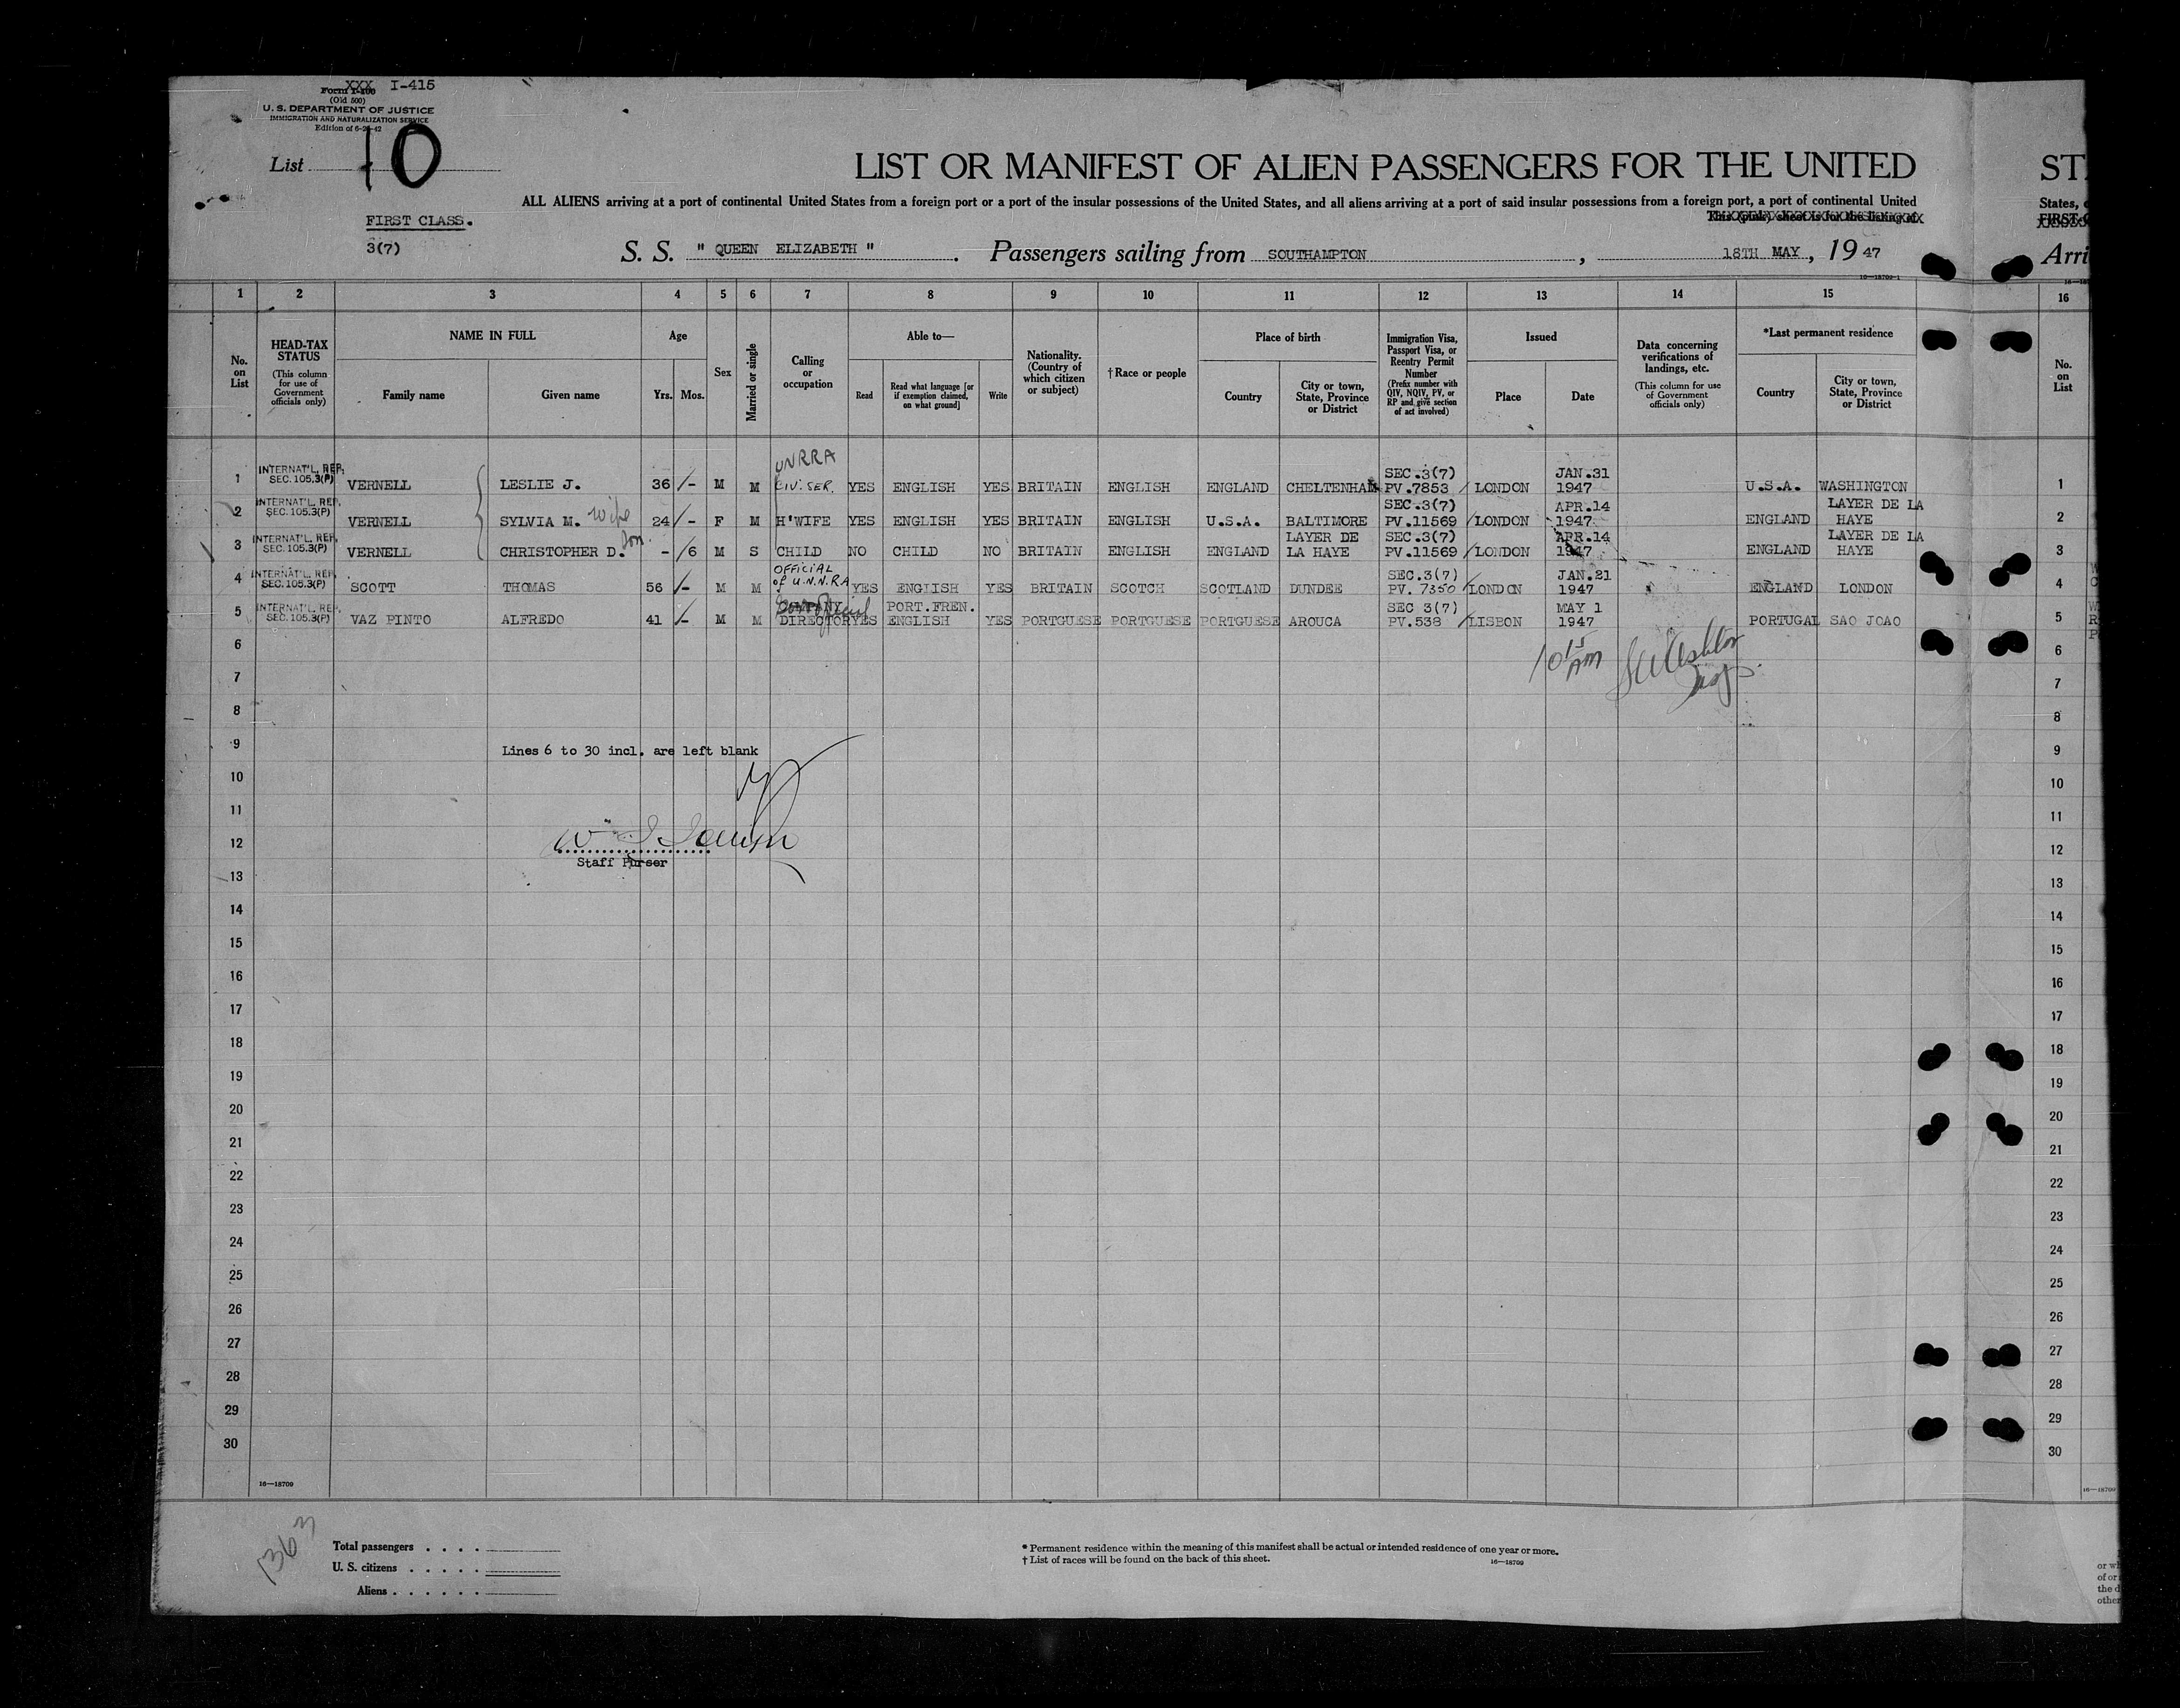 XXX I-415
Form I-400
(Old 500)
U. S. DEPARTMENT OF JUSTICE
IMMIGRATION AND NATURALIZATION SERVICE
Edition of 6-25-42
List 10
LIST OR MANIFEST OF ALIEN PASSENGERS FOR THE UNITED ST
ALL ALIENS arriving at a port of continental United States from a foreign port or a port of the insular possessions of the United States, and all aliens arriving at a port of said insular possessions from a foreign port, a port of continental United States,
This (pink) sheet is for the listing of
FIRST-C
FIRST CLASS.
3(7)
S. S. " QUEEN ELIZABETH ". Passengers sailing from SOUTHAMPTON, 18TH MAY, 1947 Arri
16—18709-1
1 2 3 4 5 6 7 8 9 10 11 12 13 14 15 16
No. on List
HEAD-TAX STATUS
(This column for use of Government officials only)
NAME IN FULL
Family name Given name
Age
Yrs. Mos.
Sex
Married or single
Calling or occupation
Able to—
Read
Read what language [or if exemption claimed, on what ground]
Write
Nationality. (Country of which citizen or subject)
†Race or people
Place of birth
Country
City or town, State, Province or District
Immigration Visa, Passport Visa, or Reentry Permit Number
(Prefix number with QIV, NQIV, PV, or RP and give section of act involved)
Issued
Place Date
Data concerning verifications of landings, etc.
(This column for use of Government officials only)
*Last permanent residence
Country
City or town, State, Province or District
No. on List
UNRRA
INTERNAT'L. REP. SEC.3(7) JAN.31
1 SEC. 105.3(P) VERNELL LESLIE J. 36 / - M M CIV. SER. YES ENGLISH YES BRITAIN ENGLISH ENGLAND CHELTENHAM PV.7853 / LONDON 1947 U.S.A. WASHINGTON 1
INTERNAT'L. REP. SEC.3(7) APR.14 LAYER DE LA
2 SEC. 105.3(P) VERNELL SYLVIA M. wife 24 / - F M H'WIFE YES ENGLISH YES BRITAIN ENGLISH U.S.A. BALTIMORE PV.11569 / LONDON 1947 ENGLAND HAYE 2
INTERNAT'L. REP. son. LAYER DE SEC.3(7) APR.14 LAYER DE LA
3 SEC. 105.3(P) VERNELL CHRISTOPHER D. - / 6 M S CHILD NO CHILD NO BRITAIN ENGLISH ENGLAND LA HAYE PV.11569 / LONDON 1947 ENGLAND HAYE 3
INTERNAT'L. REP. OFFICIAL of U.N.N.RA SEC.3(7) JAN.21
4 SEC. 105.3(P) SCOTT THOMAS 56 / - M M YES ENGLISH YES BRITAIN SCOTCH SCOTLAND DUNDEE PV. 7350 / LONDON 1947 ENGLAND LONDON 4
INTERNAT'L. REP. COMPANY PORT.FREN. SEC 3(7) MAY 1
5 SEC. 105.3(P) VAZ PINTO ALFREDO 41 / - M M DIRECTOR YES ENGLISH YES PORTGUESE PORTGUESE PORTGUESE AROUCA PV.538 / LISBON 1947 PORTUGAL SAO JOAO 5
6 10 15 AM 6
7 7
8 8
9 Lines 6 to 30 incl. are left blank 9
10 10
11 11
12 12
Staff Purser
13 13
14 14
15 15
16 16
17 17
18 18
19 19
20 20
21 21
22 22
23 23
24 24
25 25
26 26
27 27
28 28
29 29
30 30
16—18709 16—18709
Total passengers . . . .
U. S. citizens . . . . .
Aliens . . . . . .
* Permanent residence within the meaning of this manifest shall be actual or intended residence of one year or more.
† List of races will be found on the back of this sheet.
16—18709
or wh
of or
the d
other